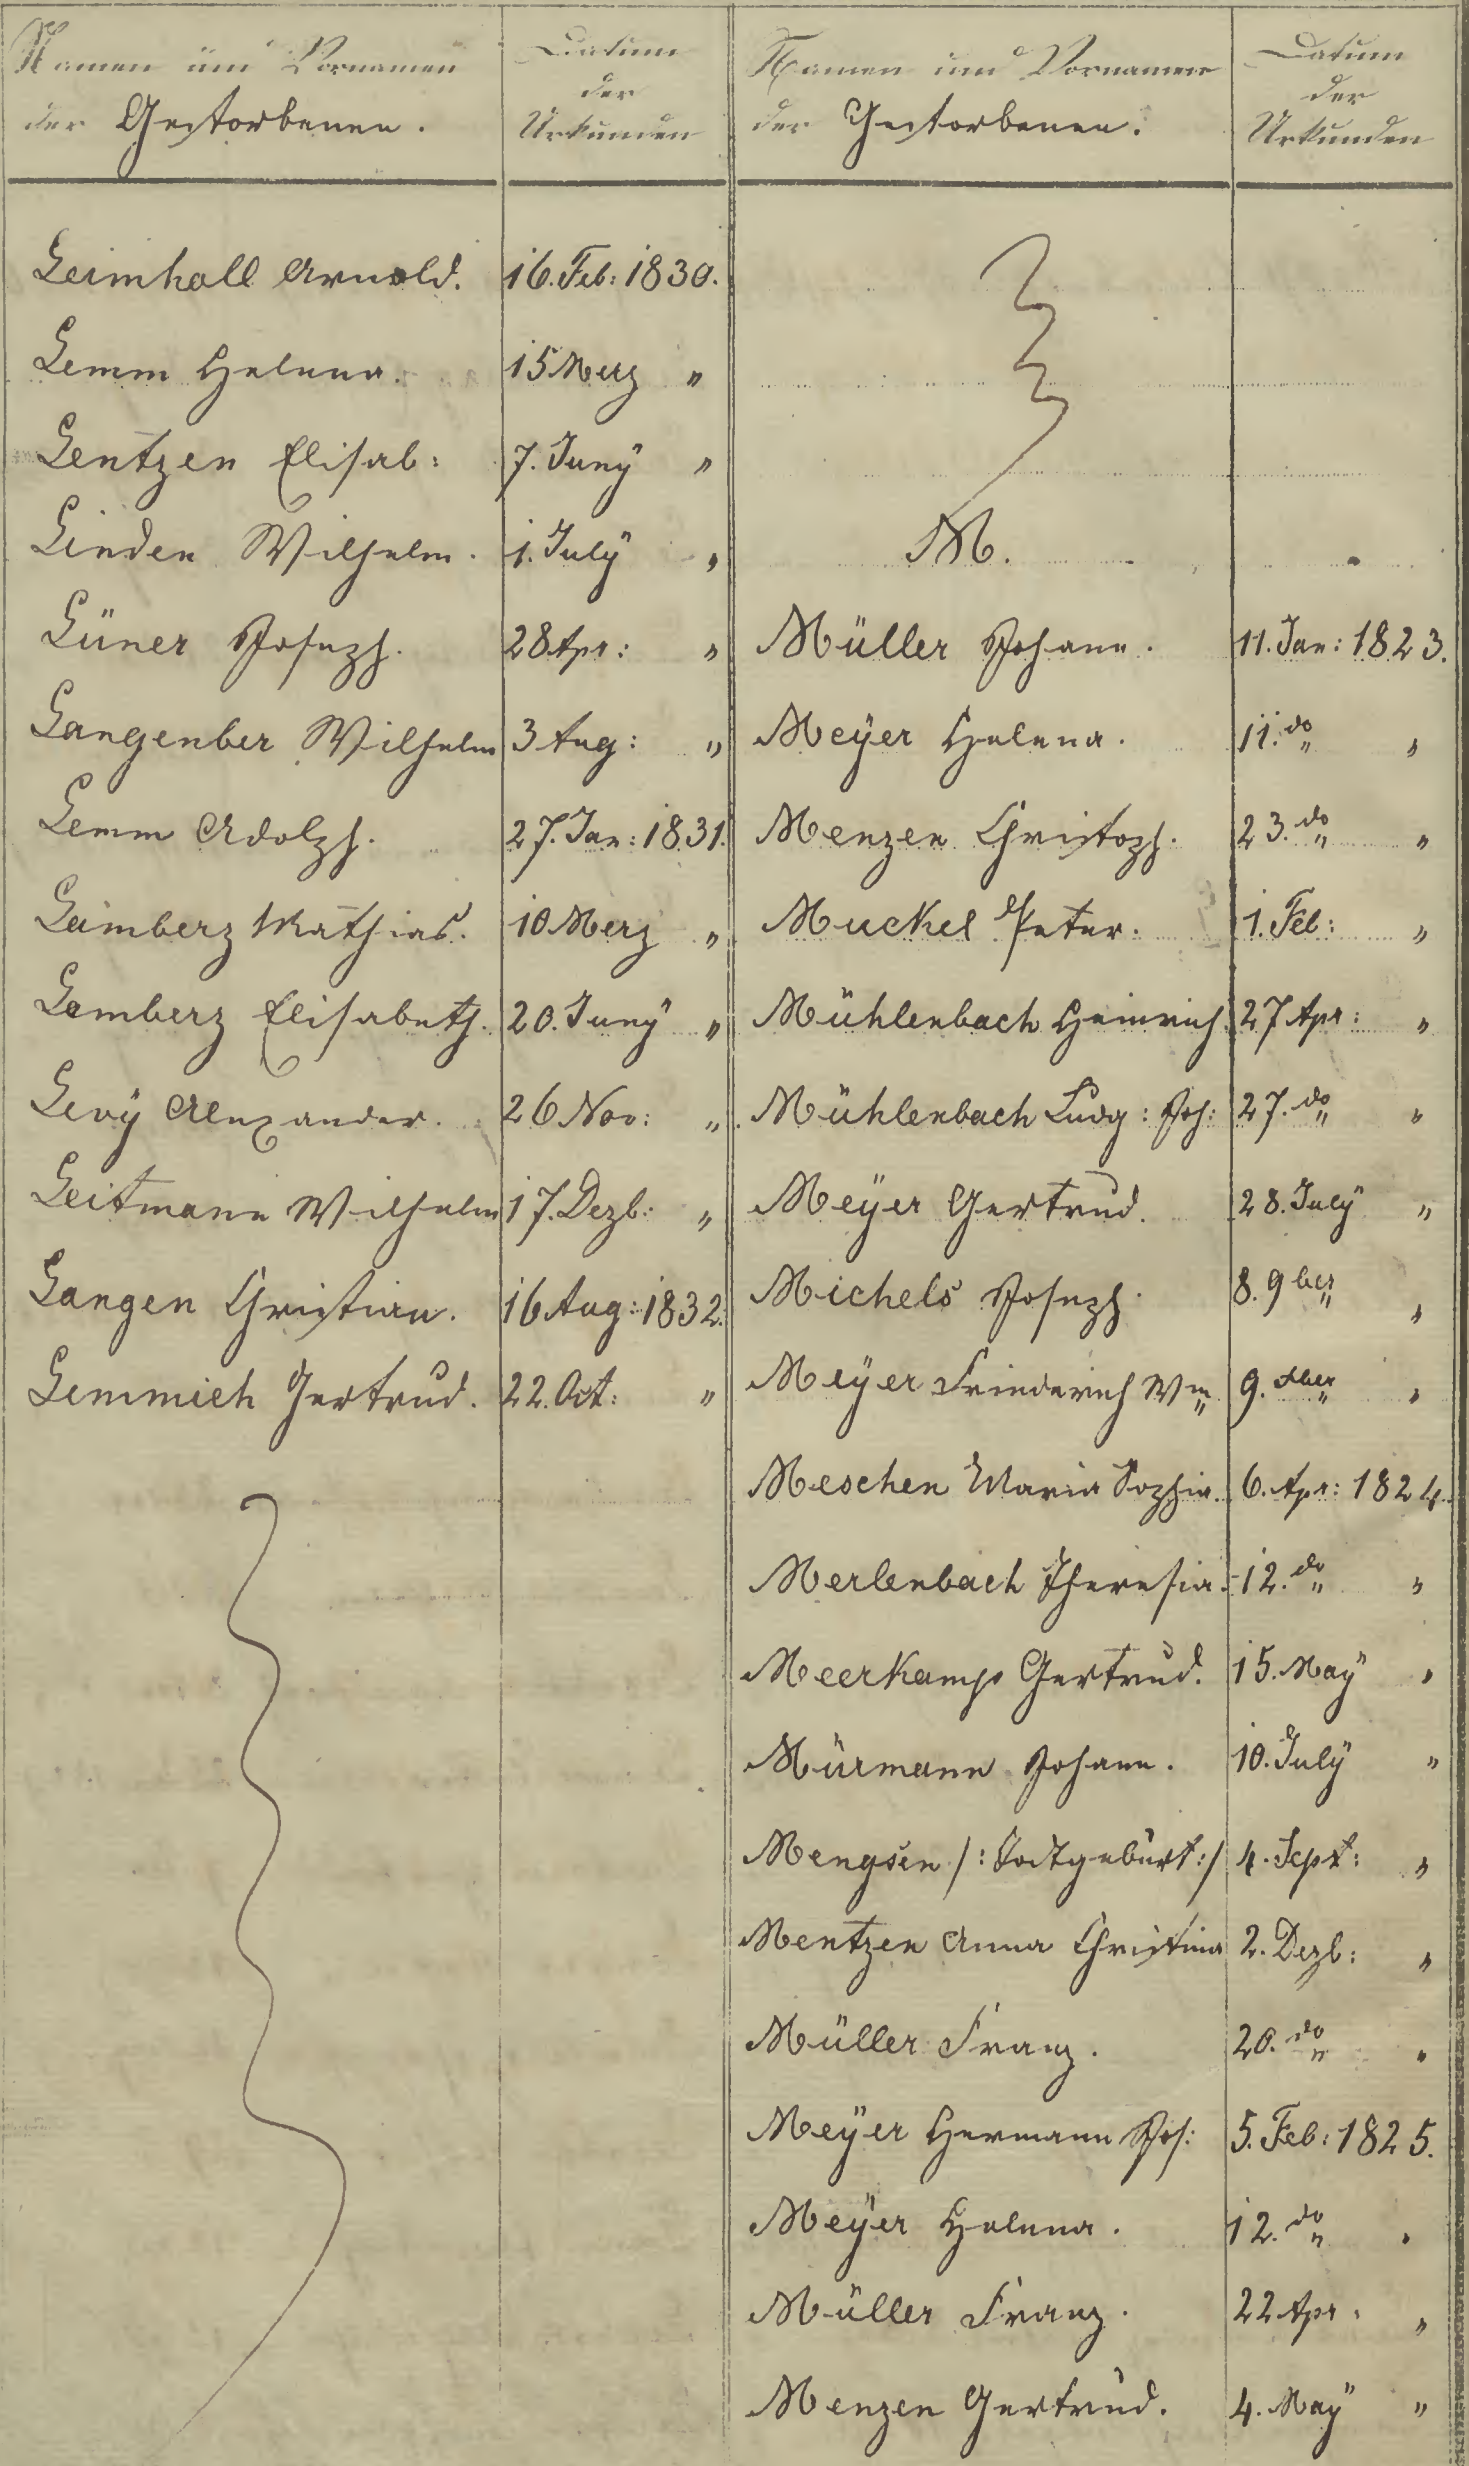 Namen und Vornamen
der Gestorbenen.
Datum
der
Urkunden
Leimhall Arnold. 16. Feb: 1830.
Lemm Helena. 15 Merz "
Lentzen Elisab: 7. Juny "
Linden Wilhelm. 1. July "
Lüner Joseph. 28 Apr: "
Langenber Wilhelm 3 Aug: "
Lemm Adolph. 27. Jan: 1831.
Lamberz Mathias. 10 Merz "
Lamberz Elisabeth. 20. Juny "
Levÿ Alexander. 26 Nov: "
Leitmann Wilhelm 17. Dezb: "
Langen Christian. 16 Aug: 1832.
Lemmich Gertrud. 22. Oct: "
Namen und Vornamen
der Gestorbenen.
Datum
der
Urkunden
M.
Müller Johann. 11. Jan: 1823.
Meÿer Helena. 11. do "
Menzen Christoph. 23. do "
Muckel Peter. 1. Feb: "
Mühlenbach Heinrich. 27 Apr: "
Mühlenbach Ludg: Jos: 27. do "
Meÿer Gertrud. 28. July "
Michels Joseph. 8. 9ber "
Meÿer Friederich Wm 9. xber "
Meschen Maria Sophia. 6. Apr: 1824.
Merlenbach Theresia. 12. do "
Meerkamp Gertrud. 15. May "
Mürmann Johann. 10. July "
Mengsen /: Todtgeburt :/ 4. Sept: "
Mentzen Anna Christina 2. Dezb: "
Müller Franz. 20. do "
Meÿer Hermann Jos: 5. Feb: 1825.
Meÿer Helena. 12. do "
Müller Franz. 22 Apr: "
Menzen Gertrud. 4. May "